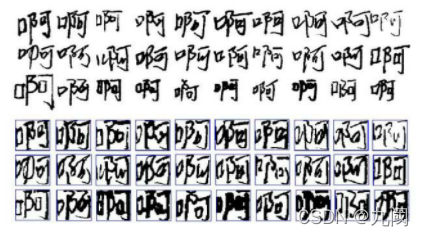 啊啊啊啊啊啊啊啊啊啊
啊啊啊啊啊啊啊啊啊啊
啊啊啊啊啊啊啊啊啊啊
啊啊啊啊啊啊啊啊啊啊
啊啊啊啊啊啊啊啊啊啊
啊啊啊啊啊啊啊啊啊啊
CSDN